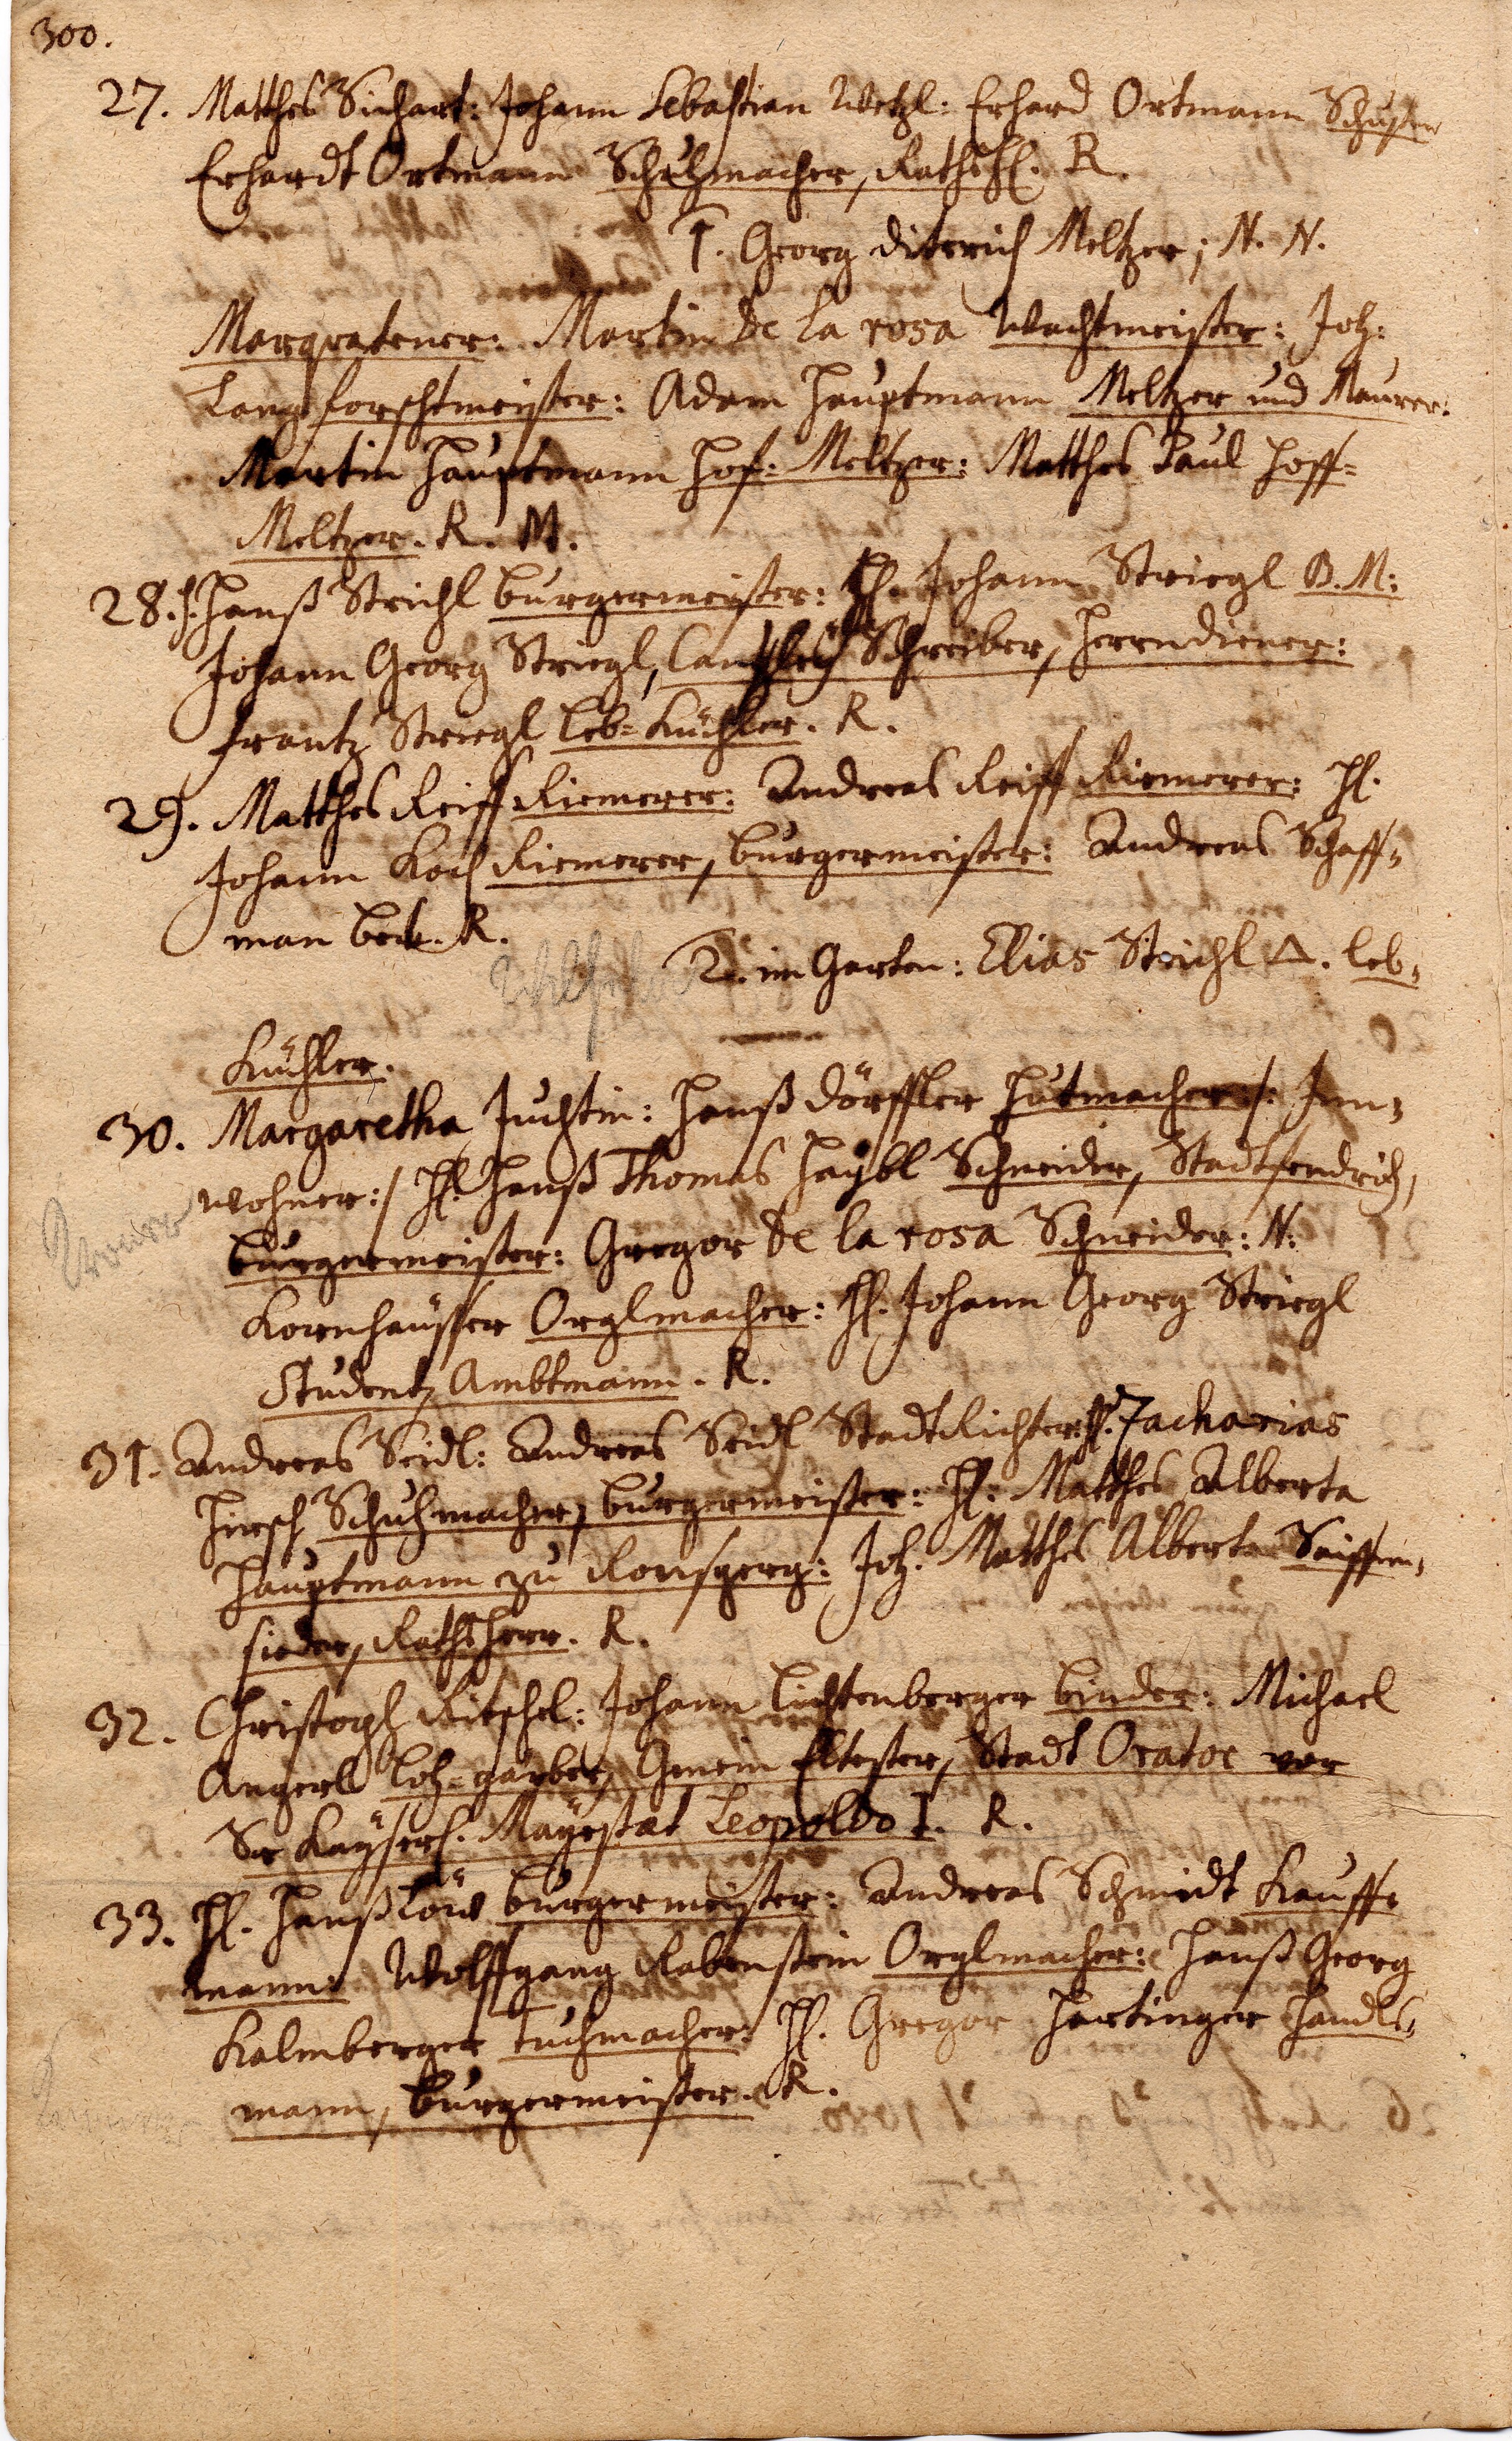 300.
27. Matthes Sichart: Johann Sebastian Wetzl: Erhard Ortmann Schuster
Erhardt Ortmann Schuhmacher, Rathsh. R.
1. Georg Diterich Meltzer; N. N.
Marqratener: Martin De la rosa Wachtmeister: Joh:
Lang forschtmeister: Adam Hauptmann Meltzer und Maurer:
Martin Hauptmann Hof-Meltzer: Matthes Paul Hoff-
Meltzer. R. M.
28. H. Hanß Strichl burgermeister: H. Johann Striegl B. M:
Johann Georg Striegl, Cantzley Schreiber, Herrndiener:
frantz Striegl leb-Küchler. R.
29. Matthes Reiff Riemerer: Andreas Reiff Riemerer: H.
Johann Koch Riemerer, burgermeister: Andreas Schaff-
man beck. R.
2. im Garten: Elias Strichl leb-
Küchler.
30. Margaretha Juchtin: Hanß dörffler Hutmacher /: Inn-
wohner :/ H. Hanß Thomas Haybl Schneider, Stadtfendrich,
burgermeister: Gregor De la rosa Schneider: N:
Kornhäusser Orglmacher: H. Johann Georg Striegl
Student, Ambtmann. R.
31. Andreas Seidl: Andreas Seidl StadtRichter: H. Zacharias
Hirsch Schuhmacher, burgermeister: H: Matthes Alberta
Hauptmann zu Ronsperg: Joh. Matthes Alberta Seiffen-
sieder, Rathsherr. R.
32. Christoph Ritschel: Johann Lichtenberger binder: Michael
Angerll Loh-garber, Gmein Eltester, Stadt Orator vor
Sr Kayserl. Mayestät Leopoldo I. R.
33. H. Hanß Löw burgermeister: Andreas Schmidt Kauff-
mann: Wolffgang Rabenstein Orglmacher: Hanß Georg
Kalmberger tuchmacher: H. Gregor Hartinger Handls-
mann, burgermeister. R.